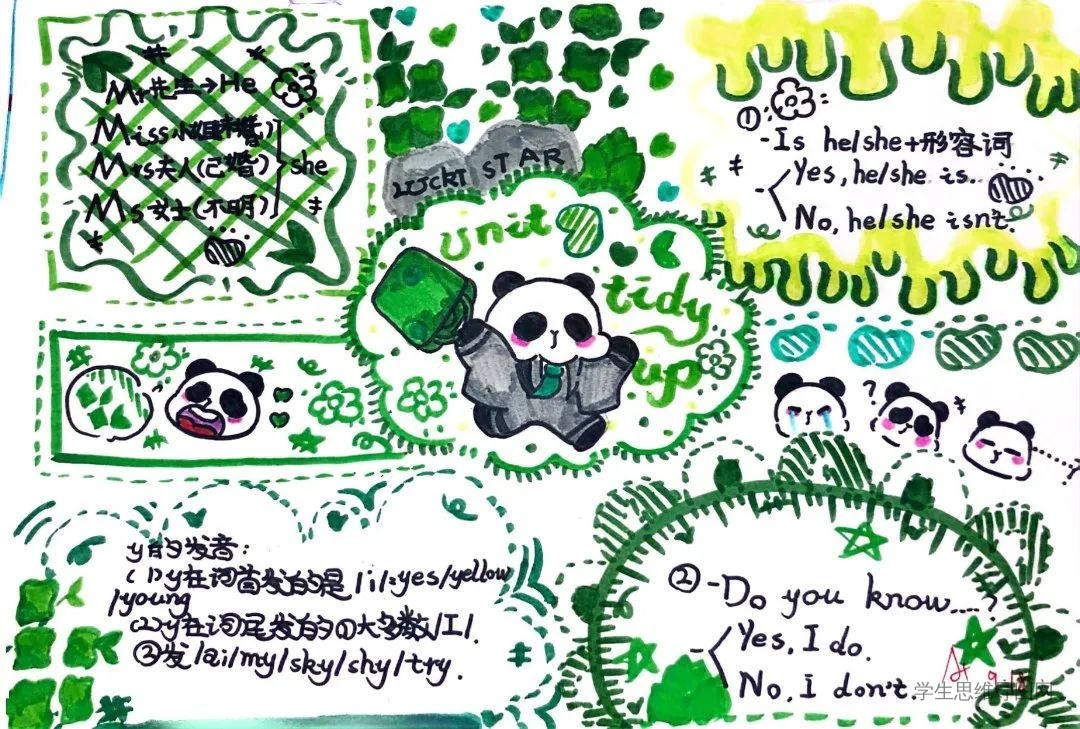 Mr先生→He
Miss小姐(未婚)
Mrs夫人(已婚)
Ms女士(不明)
she
LUCKT STAR
unit
tidy
up
①
-Is he/she+形容词
Yes, he/she is.
No, he/she isn't.
?
y的发音:
(1)y在词首发的是/i/:yes/yellow
/young
(2)y在词尾发的①大多数/I/.
②发/ai/my/sky/shy/try.
②-Do you know.....?
Yes, I do.
No, I don't.
学生思维导图网